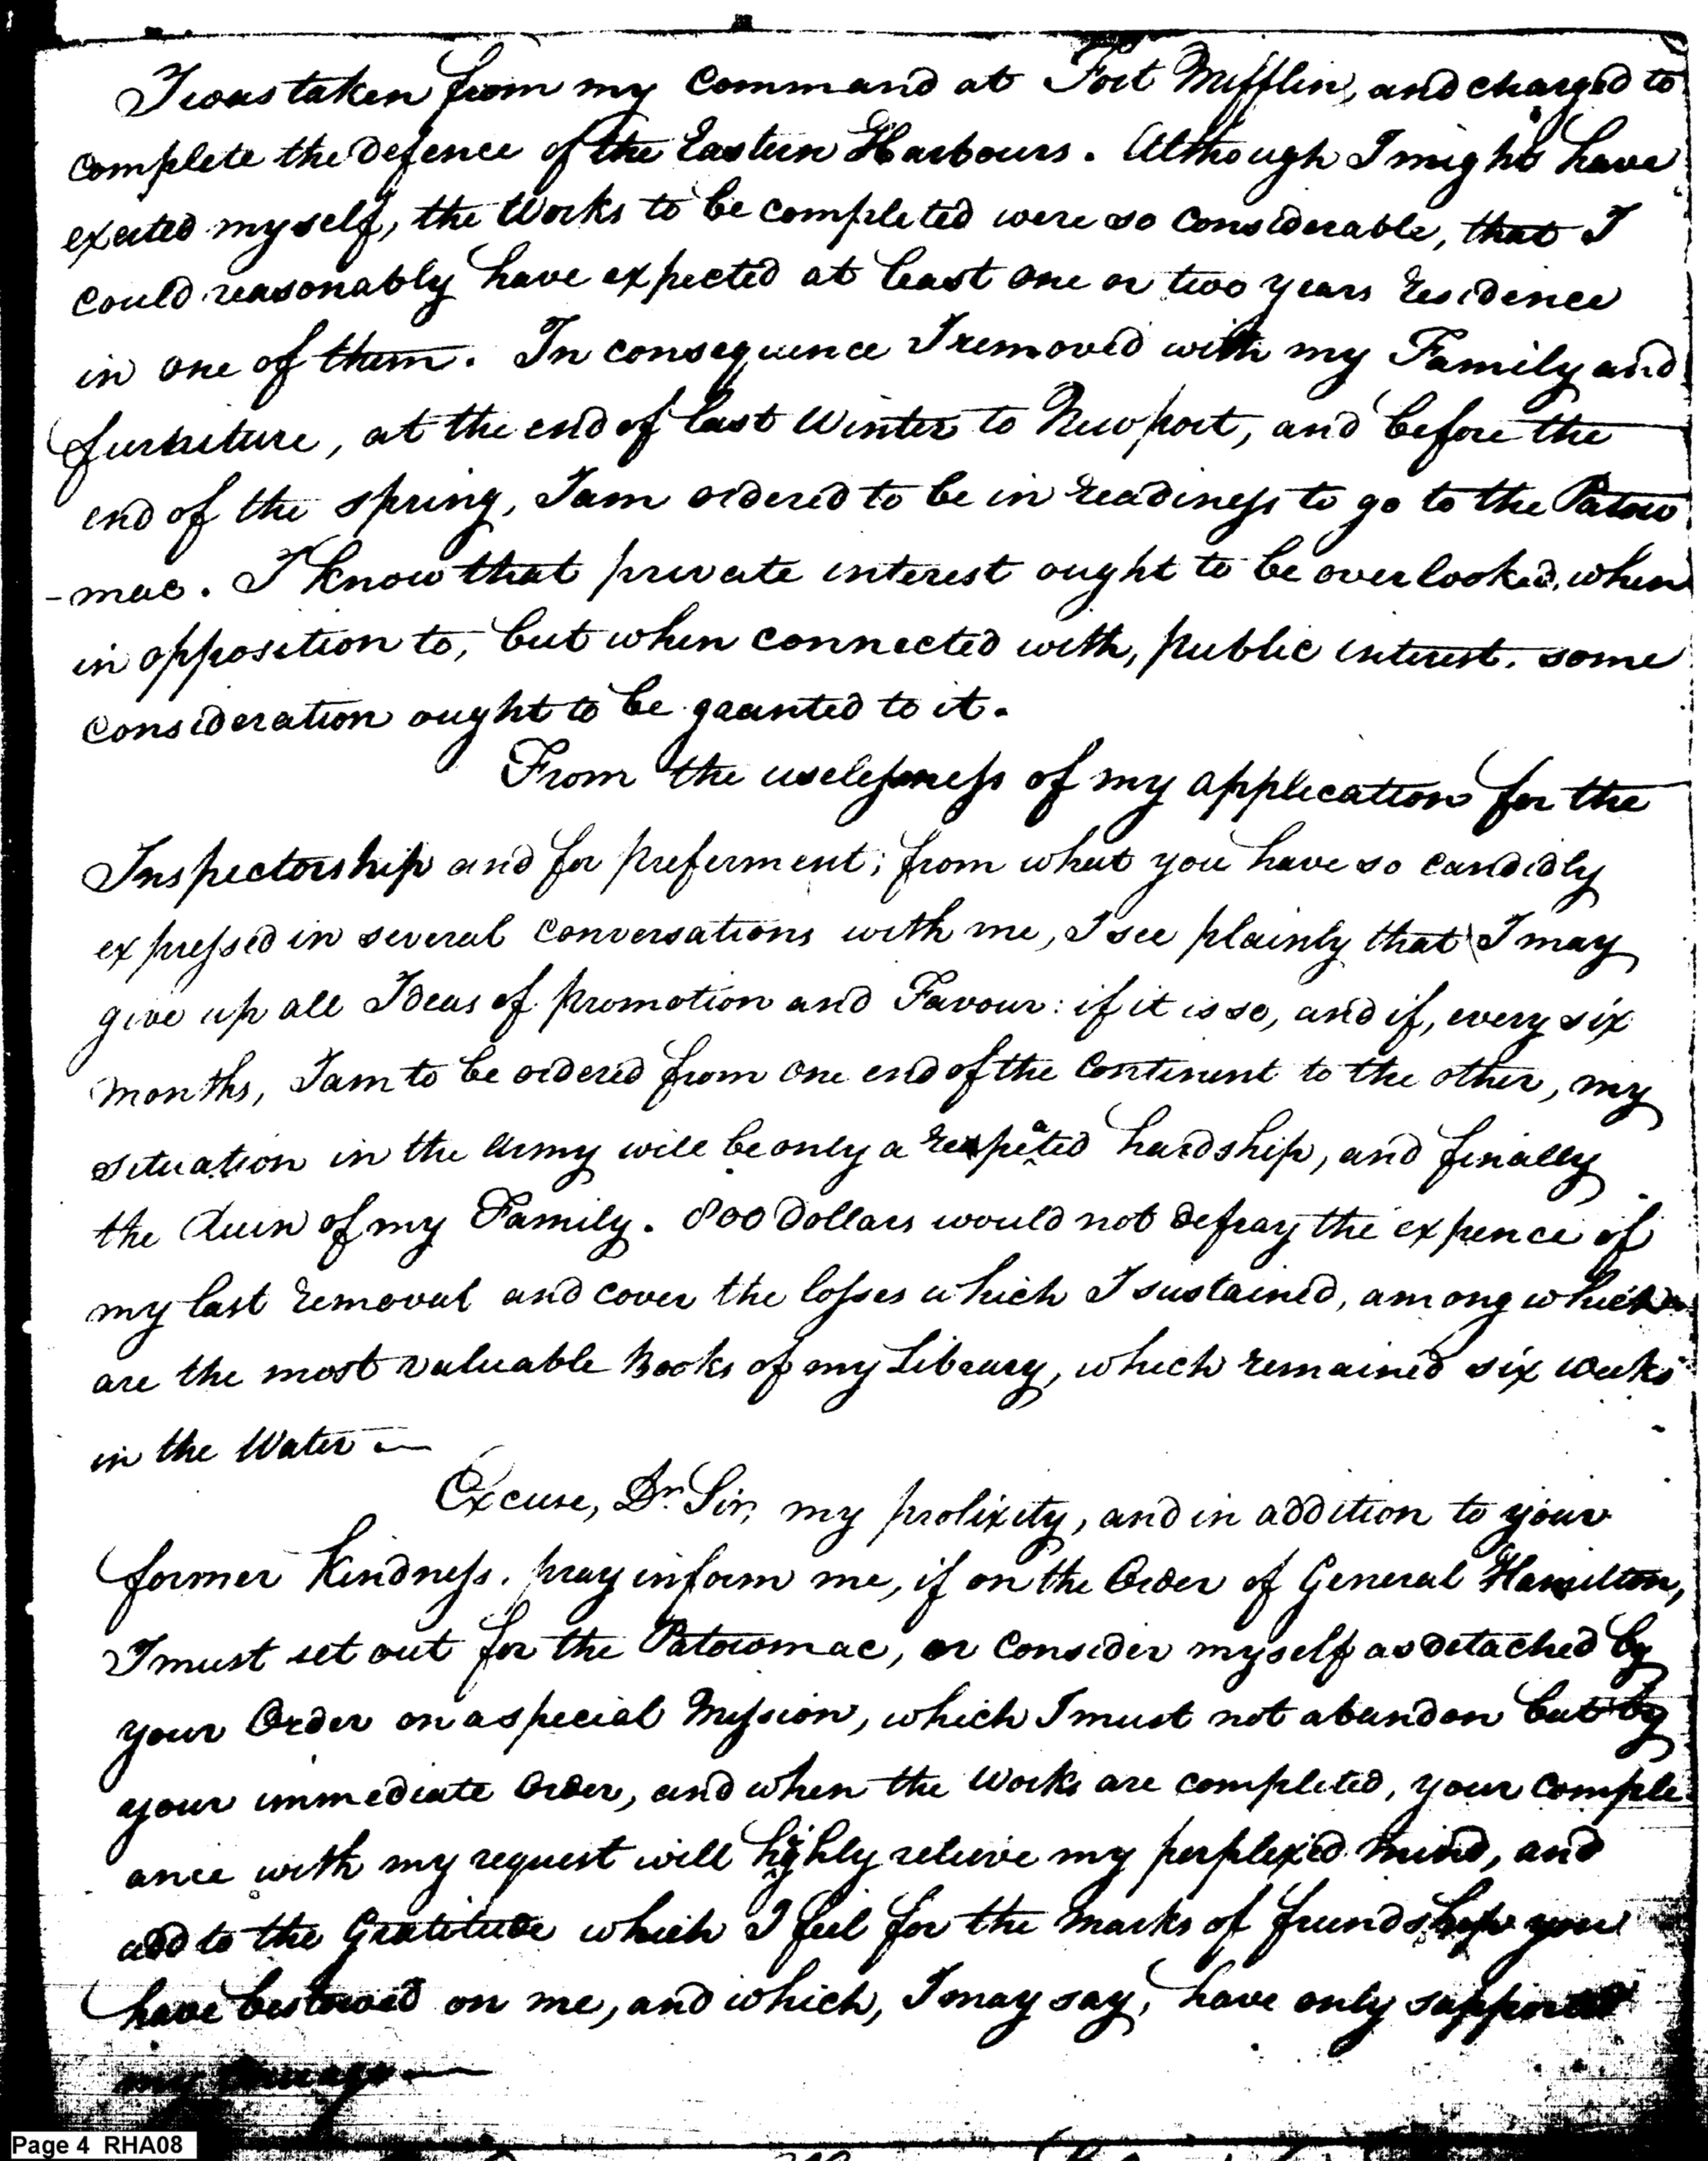 I was taken from my Command at Fort Mifflin, and charged to
complete the defence of the Eastern Harbours. Although I might have
exerted myself, the Works to be completed were so considerable, that I
could reasonably have expected at least one or two years residence
in one of them. In consequence I removed with my Family and
furniture, at the end of last Winter to Newport, and before the
end of the spring, I am ordered to be in readiness to go to the Patow
-mac. I know that private interest ought to be overlooked, when
in opposition to, but when connected with, public interest. some
consideration ought to be granted to it.
From the uselessness of my application for the
Inspectorship and for preferment; from what you have so candidly
expressed in several conversations with me, I see plainly that I may
give up all Ideas of promotion and Favour: if it is so, and if, every six
months, I am to be ordered from one end of the Continent to the other, my
situation in the Army will be only a repeated hardship, and finally
the Ruin of my Family. 800 Dollars would not defray the expence of
my last removal and cover the losses which I sustained, among which
are the most valuable Books of my Library, which remained six weeks
in the Water —
Excuse, Dr. Sir, my prolixity, and in addition to your
former Kindness. pray inform me, if on the Order of General Hamilton,
I must set out for the Patowmac, or consider myself as detached by
your Order on a special Mission, which I must not abandon but by
your immediate Order, and when the Works are completed, your comple
ance with my request will highly relieve my perplexed mind, and
add to the Gratitude which I feel for the Marks of friendship you
have bestowed on me, and which, I may say, have only supported
my Courage —
Page 4 RHA08